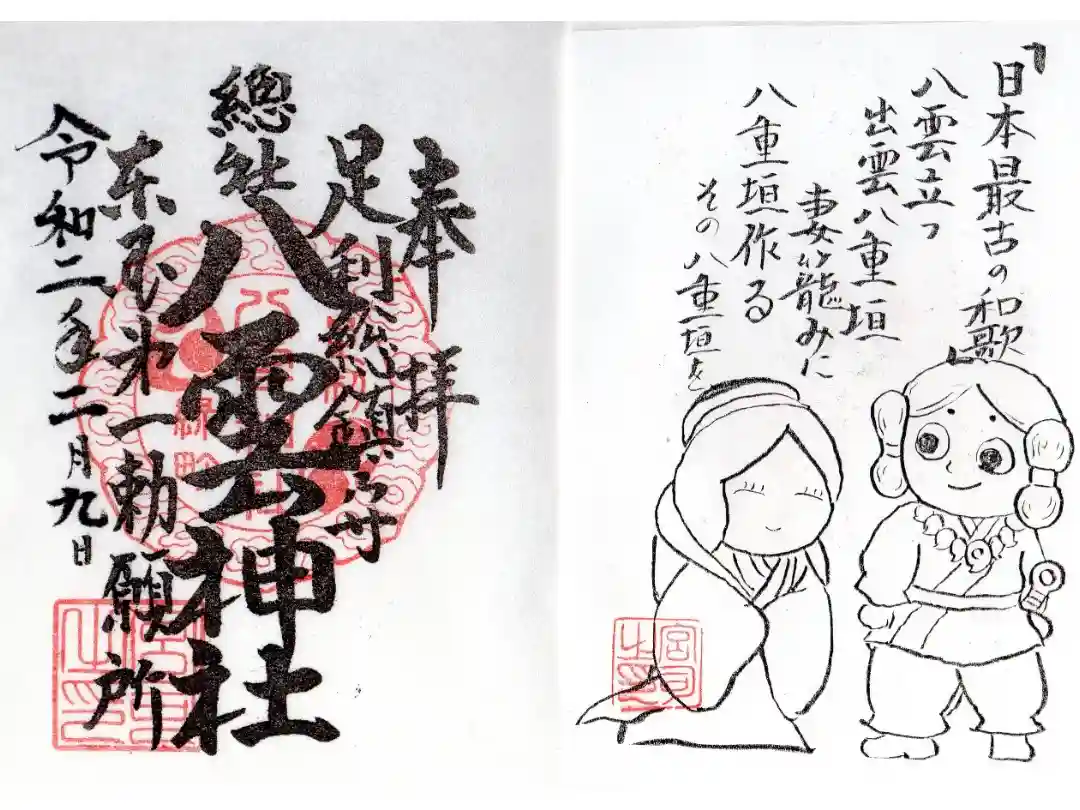 「日本最古の和歌」
八雲立つ
出雲八重垣
妻籠みに
八重垣作る
その八重垣を
宮司之印
奉拝
足利総鎮守
總社八雲神社
東国第一勅願所
令和二年二月九日
宮司之印